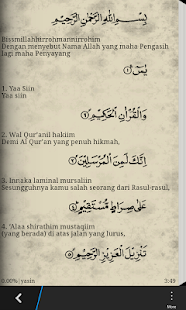 بِسْمِ اللّٰهِ الرَّحْمٰنِ الرَّحِيْمِ
Bissmillahhirrohmanirrohim
Dengan menyebut Nama Allah yang maha Pengasih
lagi maha Penyayang
يٰسٓ ﴿١﴾
1. Yaa Siin
Yaa siin
وَالْقُرْاٰنِ الْحَكِيْمِ ﴿٢﴾
2. Wal Qur'anil hakiim
Demi Al Qur'an yang penuh hikmah,
اِنَّكَ لَمِنَ الْمُرْسَلِيْنَ ﴿٣﴾
3. Innaka laminal mursaliin
Sesungguhnya kamu salah seorang dari Rasul-rasul,
عَلٰى صِرَاطٍ مُّسْتَقِيْمٍ ﴿٤﴾
4. 'Alaa shirathim mustaqiim
(yang berada) di atas jalan yang lurus,
تَنْزِيْلَ الْعَزِيْزِ الرَّحِيْمِ ﴿٥﴾
0.00% | yasin
3:49
More